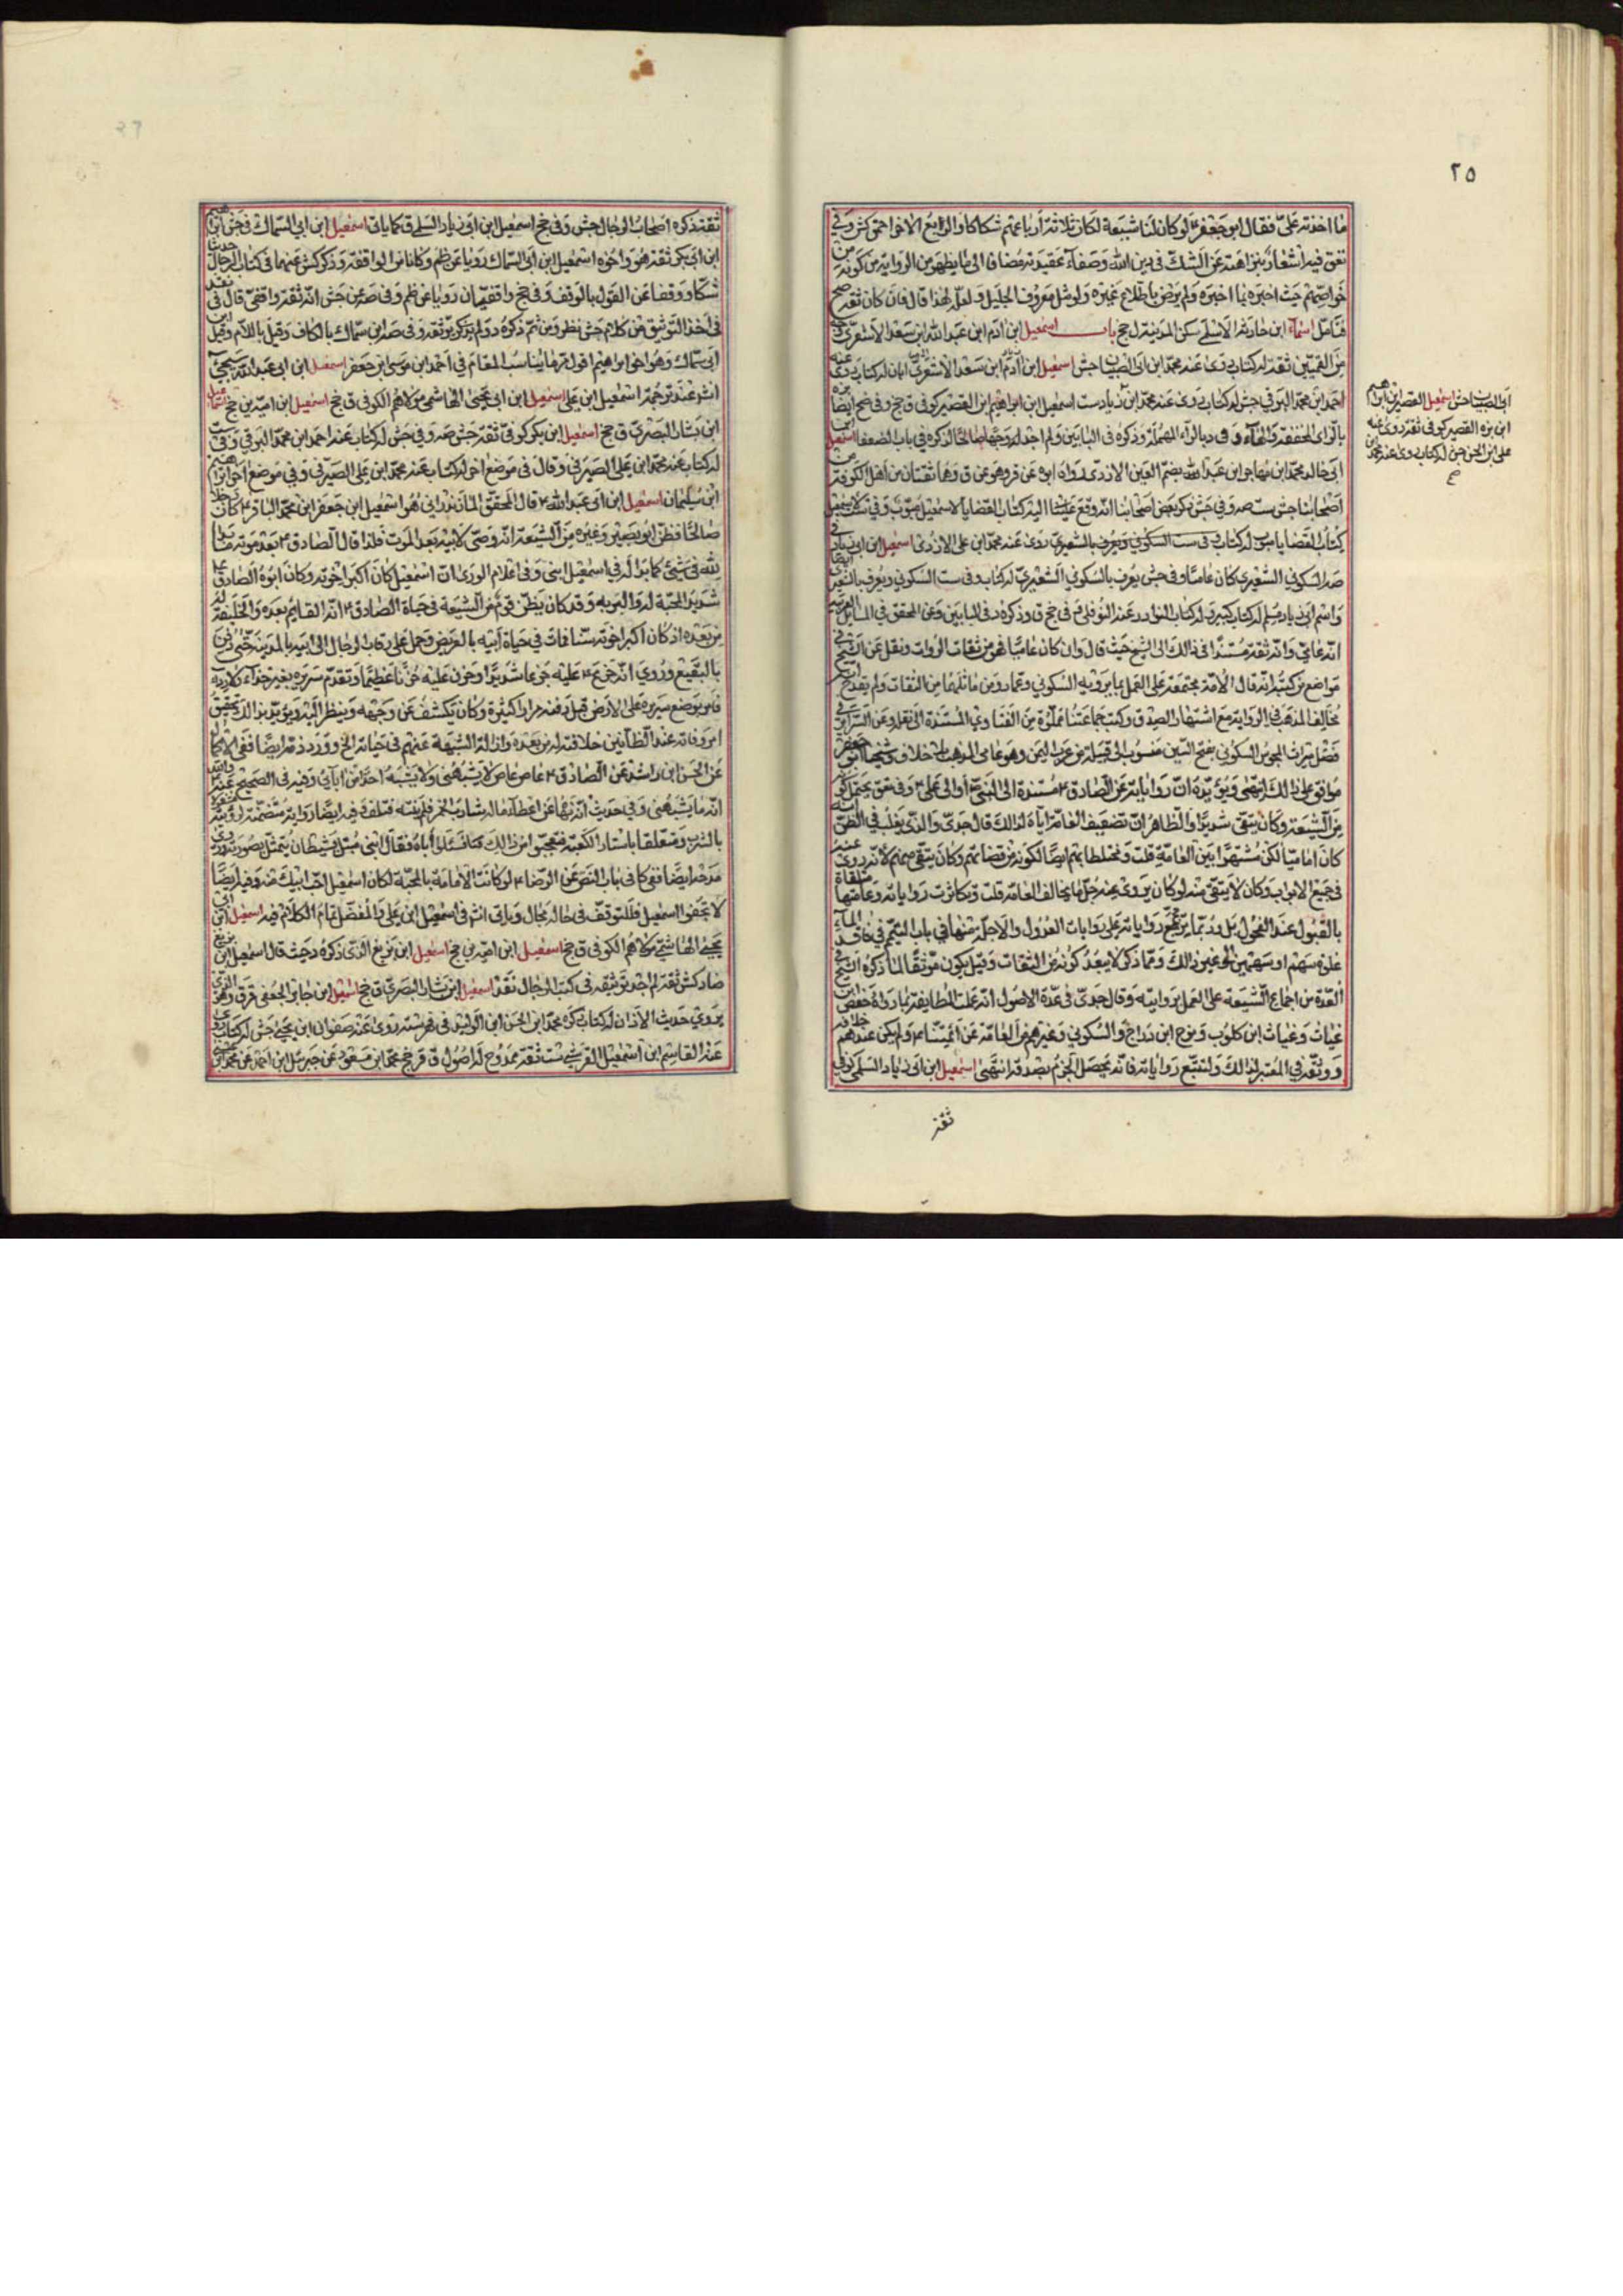 ٢٥
ما اخذته علىّ فقال ابو جعفر ع لو كان لنا شيعة لكان ثلاثة أرباعهم شكاكا والرابع الاخر احمق كش وفي
تعق فيه اشعار بنزاهته عن الشك في دين الله وصفاء عقيدته مضافا الى ما يظهر من الرواية من كونه من
خواصهم حيث اخبره بما اخبره ولم يرض باطلاع غيره ولو مثل معروف الجليل ولعل لهذا قال فان كان ثقة صح
فتأمل اسماء ابن حارثة الاسلمى سكن المدينة ل جخ باب اسمعيل ابن ادم ابن عبد الله ابن سعد الاشعرى
من القميين ثقة له كتاب روى عنه محمد ابن ابى الصهبان جش اسمعيل ابن آدم ابن سعد الاشعرى ابان له كتاب روى عنه
احمد ابن محمد البرقي جش له كتاب روى عنه محمد ابن زياد ست اسمعيل ابن ابراهيم ابن القصير كوفى ق جخ وفى ضح ايضا
بالزاى المخففة والهاء وفى د بالراء المهملة وذكره فى البابين ولم اجد له وجها صالحا لذكره في باب الضعفا اسمعيل
ابى خالد محمد ابن مهاجر ابن عبد الله بضم العين الازدى روى اباه ابوه عن قر وهو عن ق وهما ثقتان من اهل الكوفة من
اصحابنا جش ست صه وفي جش ذكر بعض اصحابنا انه وقع علينا اليه كتاب القضايا لاسمعيل مبوب وفي ست لاسمعيل
كتاب القضايا مبوب له كتاب وفى ست السكوني ويعرف بالشعيرى روى عنه محمد ابن على الازدى اسمعيل ابن ابى زياد
صه السكوني الشعيرى كان عاميا وفى جش يعرف بالسكوني الشعيرى له كتاب وفى ست السكوني ويعرف بالشعيرى ايضا
واسم ابى زياد مسلم له كتاب كبير وله كتاب النوادر عنه النوفلى وفى جخ ق وذكره د فى البابين وعن المحقق في المسائل العزية
انه عامى وانه ثقة مستندا فى ذالك الى الشيخ حيث قال وان كان عاميا فهو من ثقات الروات ونقل عن الشيخ في
مواضع من كتبه انه قال الامامية مجتمعة على العمل بما يرويه السكوني وعمار ومن ماثلهما من الثقات ولم يقدح
مخالف المذهب في الرواية مع اشتهار الصدق وكتب جماعتنا مملوة من الفتاوي المستندة الى نقله وعن السرائر في
فصل ميراث المجوس السكوني بفتح السين منسوب الى قبيلة من عرب اليمن وهو عامى المذهب بلا خلاف وشيخنا ابو جعفر
موافق على ذالك انتهى ويؤيده ان رواياته عن الصادق ع مسندة الى النبى ص أو الى على ع وفى تعق يحتمل كونه
من الشيعة وكان يتقى شديدا والظاهر ان تضعيف العامة اياه لذالك قال جدى والذى يغلب في الظن انه
كان اماميا لكن مشتهرا بين العامة قلت ومختلطا بهم ايضا لكونه من قضاتهم وكان يتقى منهم لانه روى عنه
فى جميع الابواب وكان لا يتقى منه لو كان يروى عنه جل ما يخالف العامة قلت وكاثرت رواياته وعامتها متلقاة
بالقبول عند الفحول بل ربما يرجح رواياته على روايات العدول والاجلة منها فى باب التيمم في فاقد الماء
غلوة سهم او سهمين الى غير ذالك ومما ذكر لا يبعد كونه من الثقات وقيل بكونه موثقا لما ذكره الشيخ في
العدة من اجماع الشيعة على العمل بروايته وقال جدى فى عدة الاصول انه عملت الطايفة بما رواه حفص ابن
غياث وغياث ابن كلوب ونوح ابن دراج والسكوني وغيرهم من العامة عن ائمتنا ع ولم يكن عندهم خلافه
ووثقه في المعتبر لذالك وبتتبع رواياته فانه يحصل الجزم بصدقه انتهى اسمعيل ابن ابى زياد السلمى كوفى
ثقة
ابى الصهبان جش اسمعيل القصير ابن ابراهيم
ابن بزه القصير كوفى ثقة روى عنه
على ابن الحسن جش له كتاب روى عنه محمد ابن
صح
ثقة ذكره اصحاب الرجال جش وفى جخ اسمعيل ابن ابى زياد السلمى ق كما ياتى اسمعيل ابن ابى السماك فى جش ابراهيم
ابن ابى بكر ثقة هو واخوه اسمعيل ابن ابى السماك رويا عن ظم وكانا من الواقفة وذكر كش عنهما فى كتاب الرجال حديث
شكا ووقفا عن القول بالوقف وفى جخ واقفيان رويا عن ظم وفى صه عن جش انه ثقة واقفى قال فى نقد
فى اخذ التوثيق من كلام جش نظر ومن ثم ذكره د ولم يذكر توثقه وفى صه ابن سماك بالكاف وقيل باللام وقيل ابن
ابى سمال وهو اخو ابراهيم اقول مر ما يناسب المقام في احمد ابن موسى ابن جعفر اسمعيل ابن ابى عبد الله سيجئ
اسمعيل ابن على اسمعيل ابن ابى يحيى الهاشمى مولاهم الكوفى ق جخ اسمعيل ابن امية بن جخ اسمعيل
ابن بشار البصرى ق جخ اسمعيل ابن بكر كوفى ثقة جش صه وفى جش له كتاب عنه احمد ابن محمد البرقى وفى ست
له كتاب عنه محمد ابن على الصيرفى وقال فى موضع اخر له كتاب عنه محمد ابن على الصيرفى وفي موضع اخر ابراهيم
ابن سليمان اسمعيل ابن ابى عبد الله ع قال المحقق المازندرانى هو اسمعيل ابن جعفر ابن محمد الباقر ع كان رجلا
صالحا فظن ابو بصير وغيره من الشيعة انه وصى لابيه بعد الموت فلذا قال الصادق ع بعد موته ما بدا
لله فى شئ كما بدا له في اسمعيل ابنى وفى اعلام الورى ان اسمعيل كان اكبر اخوته وكان ابوه الصادق ع
شديد المحبة له والبر به وقد كان يظن قوم من الشيعة فى حياة الصادق ع انه القايم بعده والخليفة له
من بعده اذ كان اكبر اخوته سنا فمات في حياة ابيه بالعريض وحمل على رقاب الرجال الى ابيه بالمدينة حتى دفن
بالبقيع وروي انه جزع ع عليه جزعا شديدا وحزن عليه حزنا عظيما وتقدم سريره بغير حذاء ولا رداء
فامر بوضع سريره على الارض قبل دفنه مرارا كثيرة وكان يكشف عن وجهه وينظر اليه ويريد بذالك تحقيق
امر وفاته عند الظانين خلافته له من بعده وازالة الشبهة عنهم فى حياته الخ وورد ذمه ايضا ففى الاكمال
عن الحسن ابن راشد عن الصادق ع عاص عاص لا يشبهنى ولا يشبه احدا من ابائى وفيه فى الصحيح عنه ع والله
انه ما يشبهنى وفي حديث انه نهاه عن اعطاء ماله شارب الخمر فلم ينته فتلف وفيه ايضا رواية متضمنة لرؤيته
بالشرب ومتعلقا باستار الكعبة فتعجبوا من ذالك فسألوا أباه فقال ابنى مبتلى بشيطان يتمثل بصورته وورد
مدحه ايضا ففى كا فى باب النص عن الرضا ع لو كانت الامامة بالمحبة لكان اسمعيل احب الى ابيك منه وفيه ايضا
لا تجفوا اسمعيل فللتوقف فى حاله مجال وياتى فى اسمعيل ابن على والمفضل تمام الكلام فيه اسمعيل ابن ابى
يحيى الهاشمى مولاهم الكوفى ق جخ اسمعيل ابن امية بن جخ اسمعيل ابن بزيع الذى ذكره د حيث قال اسمعيل ابن بزيع
ضا د كش ثقة لم اجد توثيقه فى كتب الرجال نقد اسمعيل ابن بشار البصرى ق جخ اسمعيل ابن جابر الجعفى قر ق وهو الذى
يروى حديث الاذان له كتاب ذكره محمد ابن الحسن ابن الوليد فى فهرسته روى عنه صفوان ابن يحيى جش له كتاب
عنه القاسم ابن اسمعيل القرشى ست ثقة ممدوح له اصول ق قر جخ محمد ابن مسعود عن جبريل ابن احمد عن محمد ابن